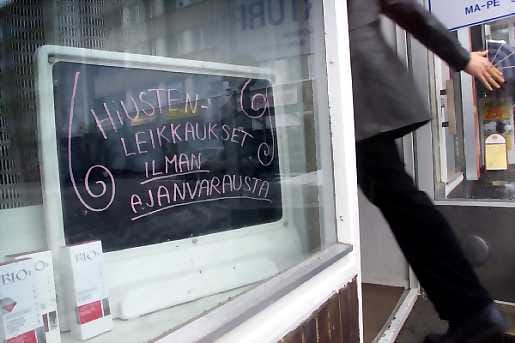 HIUSTEN-
LEIKKAUKSET
ILMAN
AJANVARAUSTA
MA-PE
BIO
BIO